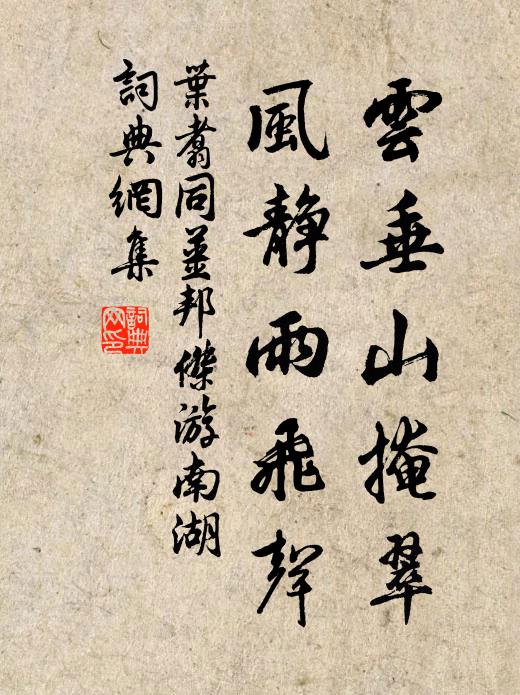 雲垂山掩翠
風静雨飛聲
葉翥同姜邦傑游南湖
詞典網集
詞典網印